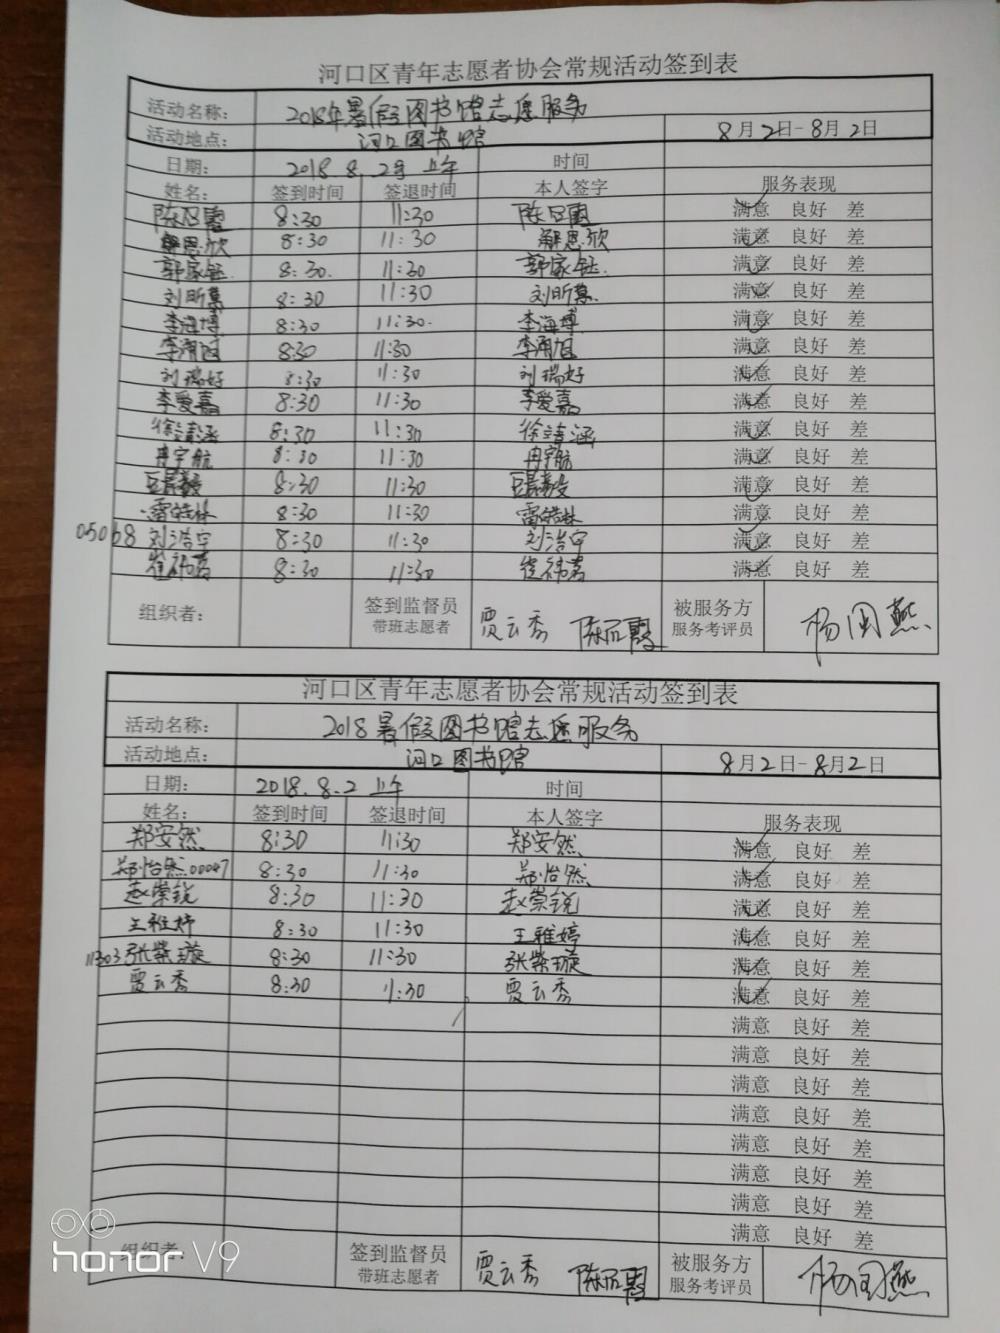 河口区青年志愿者协会常规活动签到表
活动名称： 2018年暑假图书馆志愿服务
活动地点： 河口图书馆 8月2日-8月2日
日期： 2018.8.2号上午 时间
姓名： 签到时间 签退时间 本人签字 服务表现
8:30 11:30 满意 良好 差
解思欣 8:30 11:30 解思欣 满意 良好 差
郭家钰 8:30. 11:30 郭家钰 满意 良好 差
刘昕慕 8:30 11:30 刘昕慕 满意 良好 差
李海博 8:30 11:30. 李海博 满意 良好 差
8:30 11:30 满意 良好 差
刘瑞好 8:30 11:30 刘瑞好 满意 良好 差
李爱嘉 8:30 11:30 李爱嘉 满意 良好 差
徐靖涵 8:30 11:30 徐靖涵 满意 良好 差
冉宇航 8:30 11:30 冉宇航 满意 良好 差
8:30 11:30 满意 良好 差
雷皓林 8:30 11:30 雷皓林 满意 良好 差
05068 刘浩宇 8:30 11:30 刘浩宇 满意 良好 差
8:30 11:30 满意 良好 差
组织者： 签到监督员 带班志愿者 贾云秀 被服务方 服务考评员 杨国燕
河口区青年志愿者协会常规活动签到表
活动名称： 2018暑假图书馆志愿服务
活动地点： 河口图书馆 8月2日-8月2日
日期： 2018.8.2上午 时间
姓名： 签到时间 签退时间 本人签字 服务表现
郑安然 8:30 11:30 郑安然 满意 良好 差
郑怡然00047 8:30 11:30 郑怡然 满意 良好 差
赵崇锐 8:30 11:30 赵崇锐 满意 良好 差
王雅婷 8:30 11:30 王雅婷 满意 良好 差
11303张紫璇 8:30 11:30 张紫璇 满意 良好 差
贾云秀 8:30 11:30 贾云秀 满意 良好 差
满意 良好 差
满意 良好 差
满意 良好 差
满意 良好 差
满意 良好 差
满意 良好 差
满意 良好 差
满意 良好 差
组织者： 签到监督员 带班志愿者 贾云秀 被服务方 服务考评员 杨国燕
honor V9